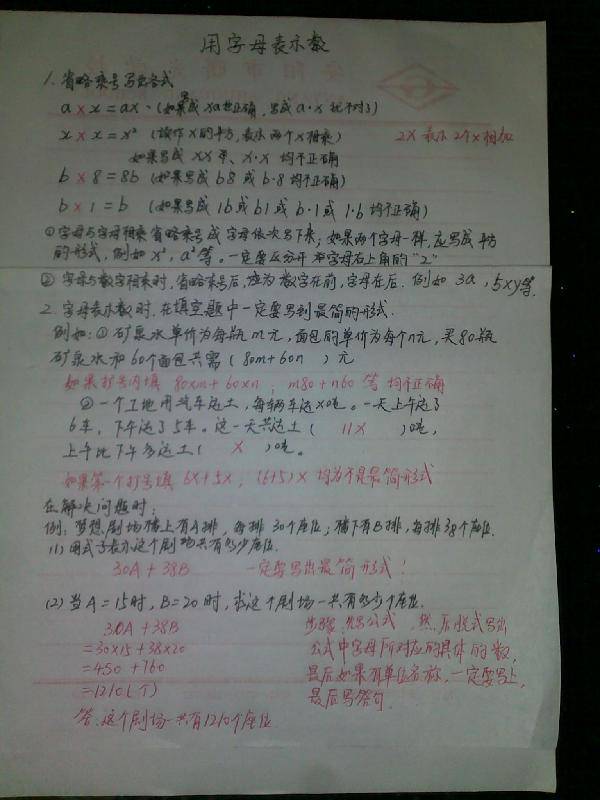 用字母表示数
1. 省略乘号写出各式
a × x = ax (如果写成 xa也正确，写成 a·x 就不对了)
x × x = x² (读作 x 的平方，表示两个 x 相乘) 2x 表示 2个x相加
如果写成 xx 或 x·x 均不正确
b × 8 = 8b (如果写成 b8 或 b·8 均不正确)
b × 1 = b (如果写成 1b 或 b1 或 b·1 或 1·b 均不正确)
①字母与字母相乘省略乘号或字母依次写下来；如果两个字母一样，应写成平方
的形式，例如 x²，a² 等。一定要区分开 在字母右上角的“2”
② 字母与数字相乘时，省略乘号后，应为数字在前，字母在后．例如 3a，5xy等．
2. 字母表示数时，在填空题中一定要写到最简的形式．
例如：① 矿泉水单价为每瓶m元，面包的单价为每个n元，买80瓶
矿泉水和60个面包共需（80m+60n ）元
如果括号内填 80×m+60×n；m80+n60 等 均不正确
② 一个工地用汽车运土，每辆车运x吨。一天上午运了
6车，下午运了5车。这一天共运土（ 11x ）吨，
上午比下午多运土（ x ）吨。
如果第一个括号填 6x+5x，(6+5)x 均为不是最简形式
在解决问题时：
例：梦想剧场楼上有A排，每排30个座位；楼下有B排，每排38个座位．
(1) 用式子表示这个剧场共有多少座位．
30A+38B 一定要写出最简形式！
(2) 当A=15时，B=20时，求这个剧场一共有多少个座位．
30A+38B
=30×15+38×20
=450+760
=1210(个)
答：这个剧场一共有1210个座位
步骤：先写公式，然后脱式写出
公式中字母所对应的具体的数，
最后如果有单位名称，一定要写上，
最后写答句．